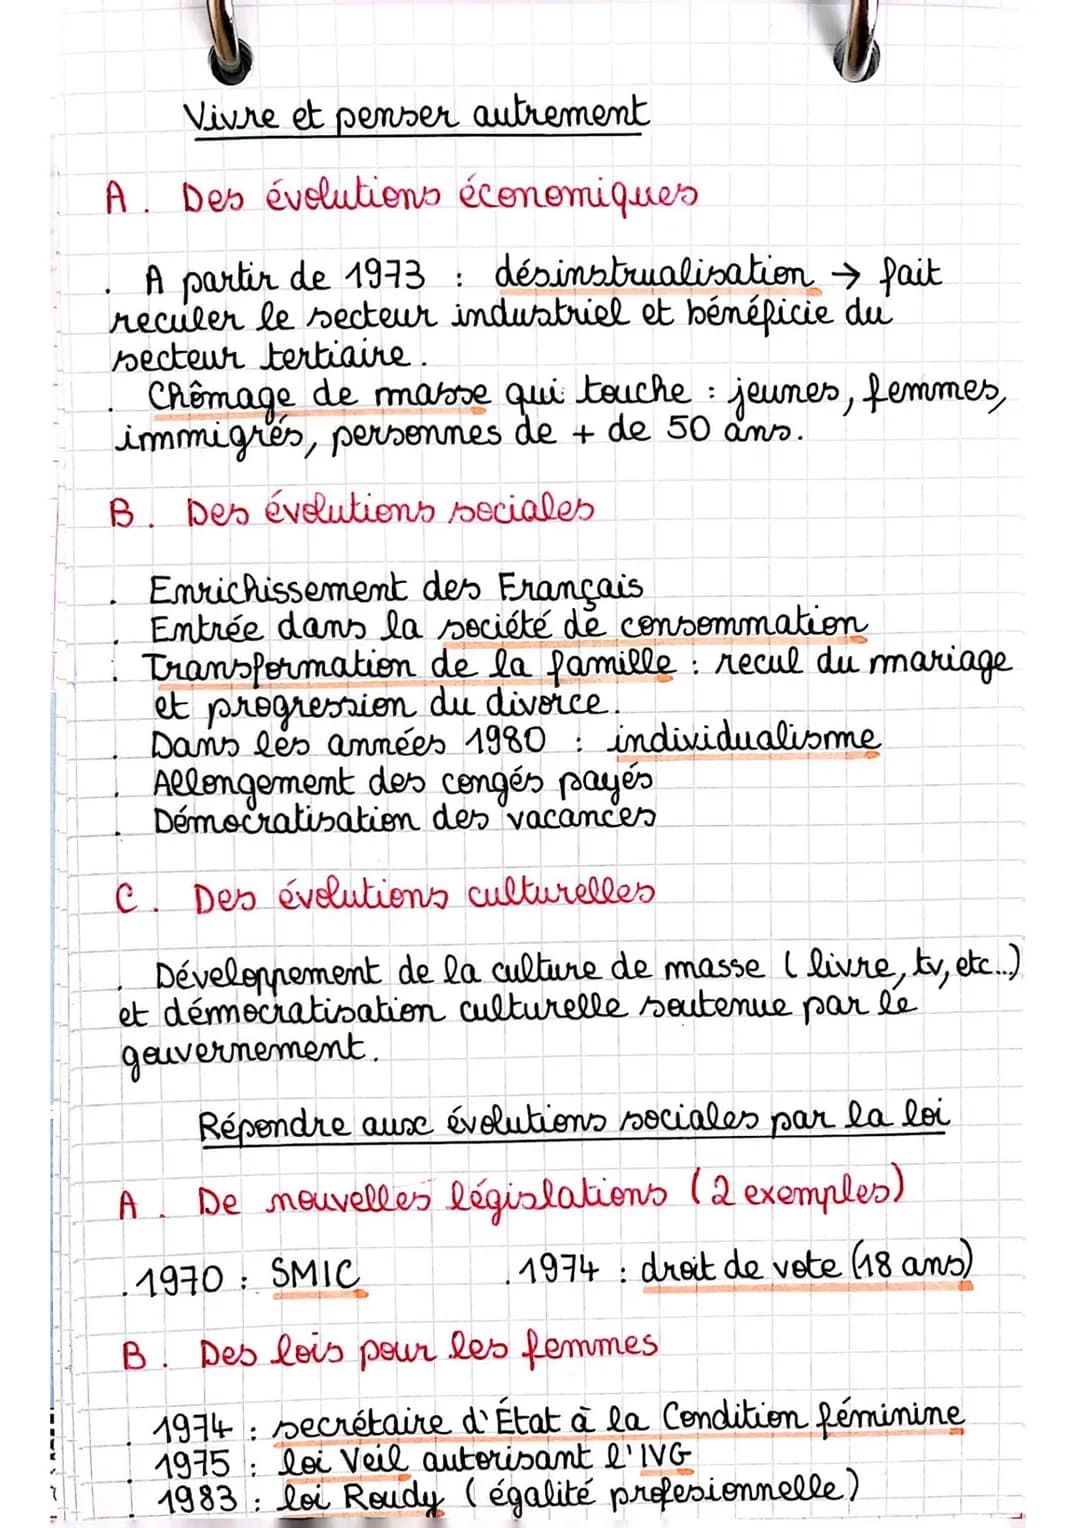 Vivre et penser autrement
A. Des évolutions économiques
. A partir de 1973 : désinstrualisation → fait
reculer le secteur industriel et bénéficie du
secteur tertiaire.
. Chômage de masse qui touche : jeunes, femmes,
immigrés, personnes de + de 50 ans.
B. Des évolutions sociales
. Enrichissement des Français
. Entrée dans la société de consommation
. Transformation de la famille : recul du mariage
et progression du divorce.
. Dans les années 1980 : individualisme
. Allongement des congés payés
. Démocratisation des vacances
C. Des évolutions culturelles
. Développement de la culture de masse (livre, tv, etc..)
et démocratisation culturelle soutenue par le
gouvernement.
Répondre aux évolutions sociales par la loi
A. De nouvelles législations (2 exemples)
. 1970 : SMIC . 1974 : droit de vote (18 ans)
B. Des lois pour les femmes
. 1974 : secrétaire d'État à la Condition féminine
. 1975 : loi Veil autorisant l'IVG
. 1983 : loi Roudy (égalité profesionnelle)